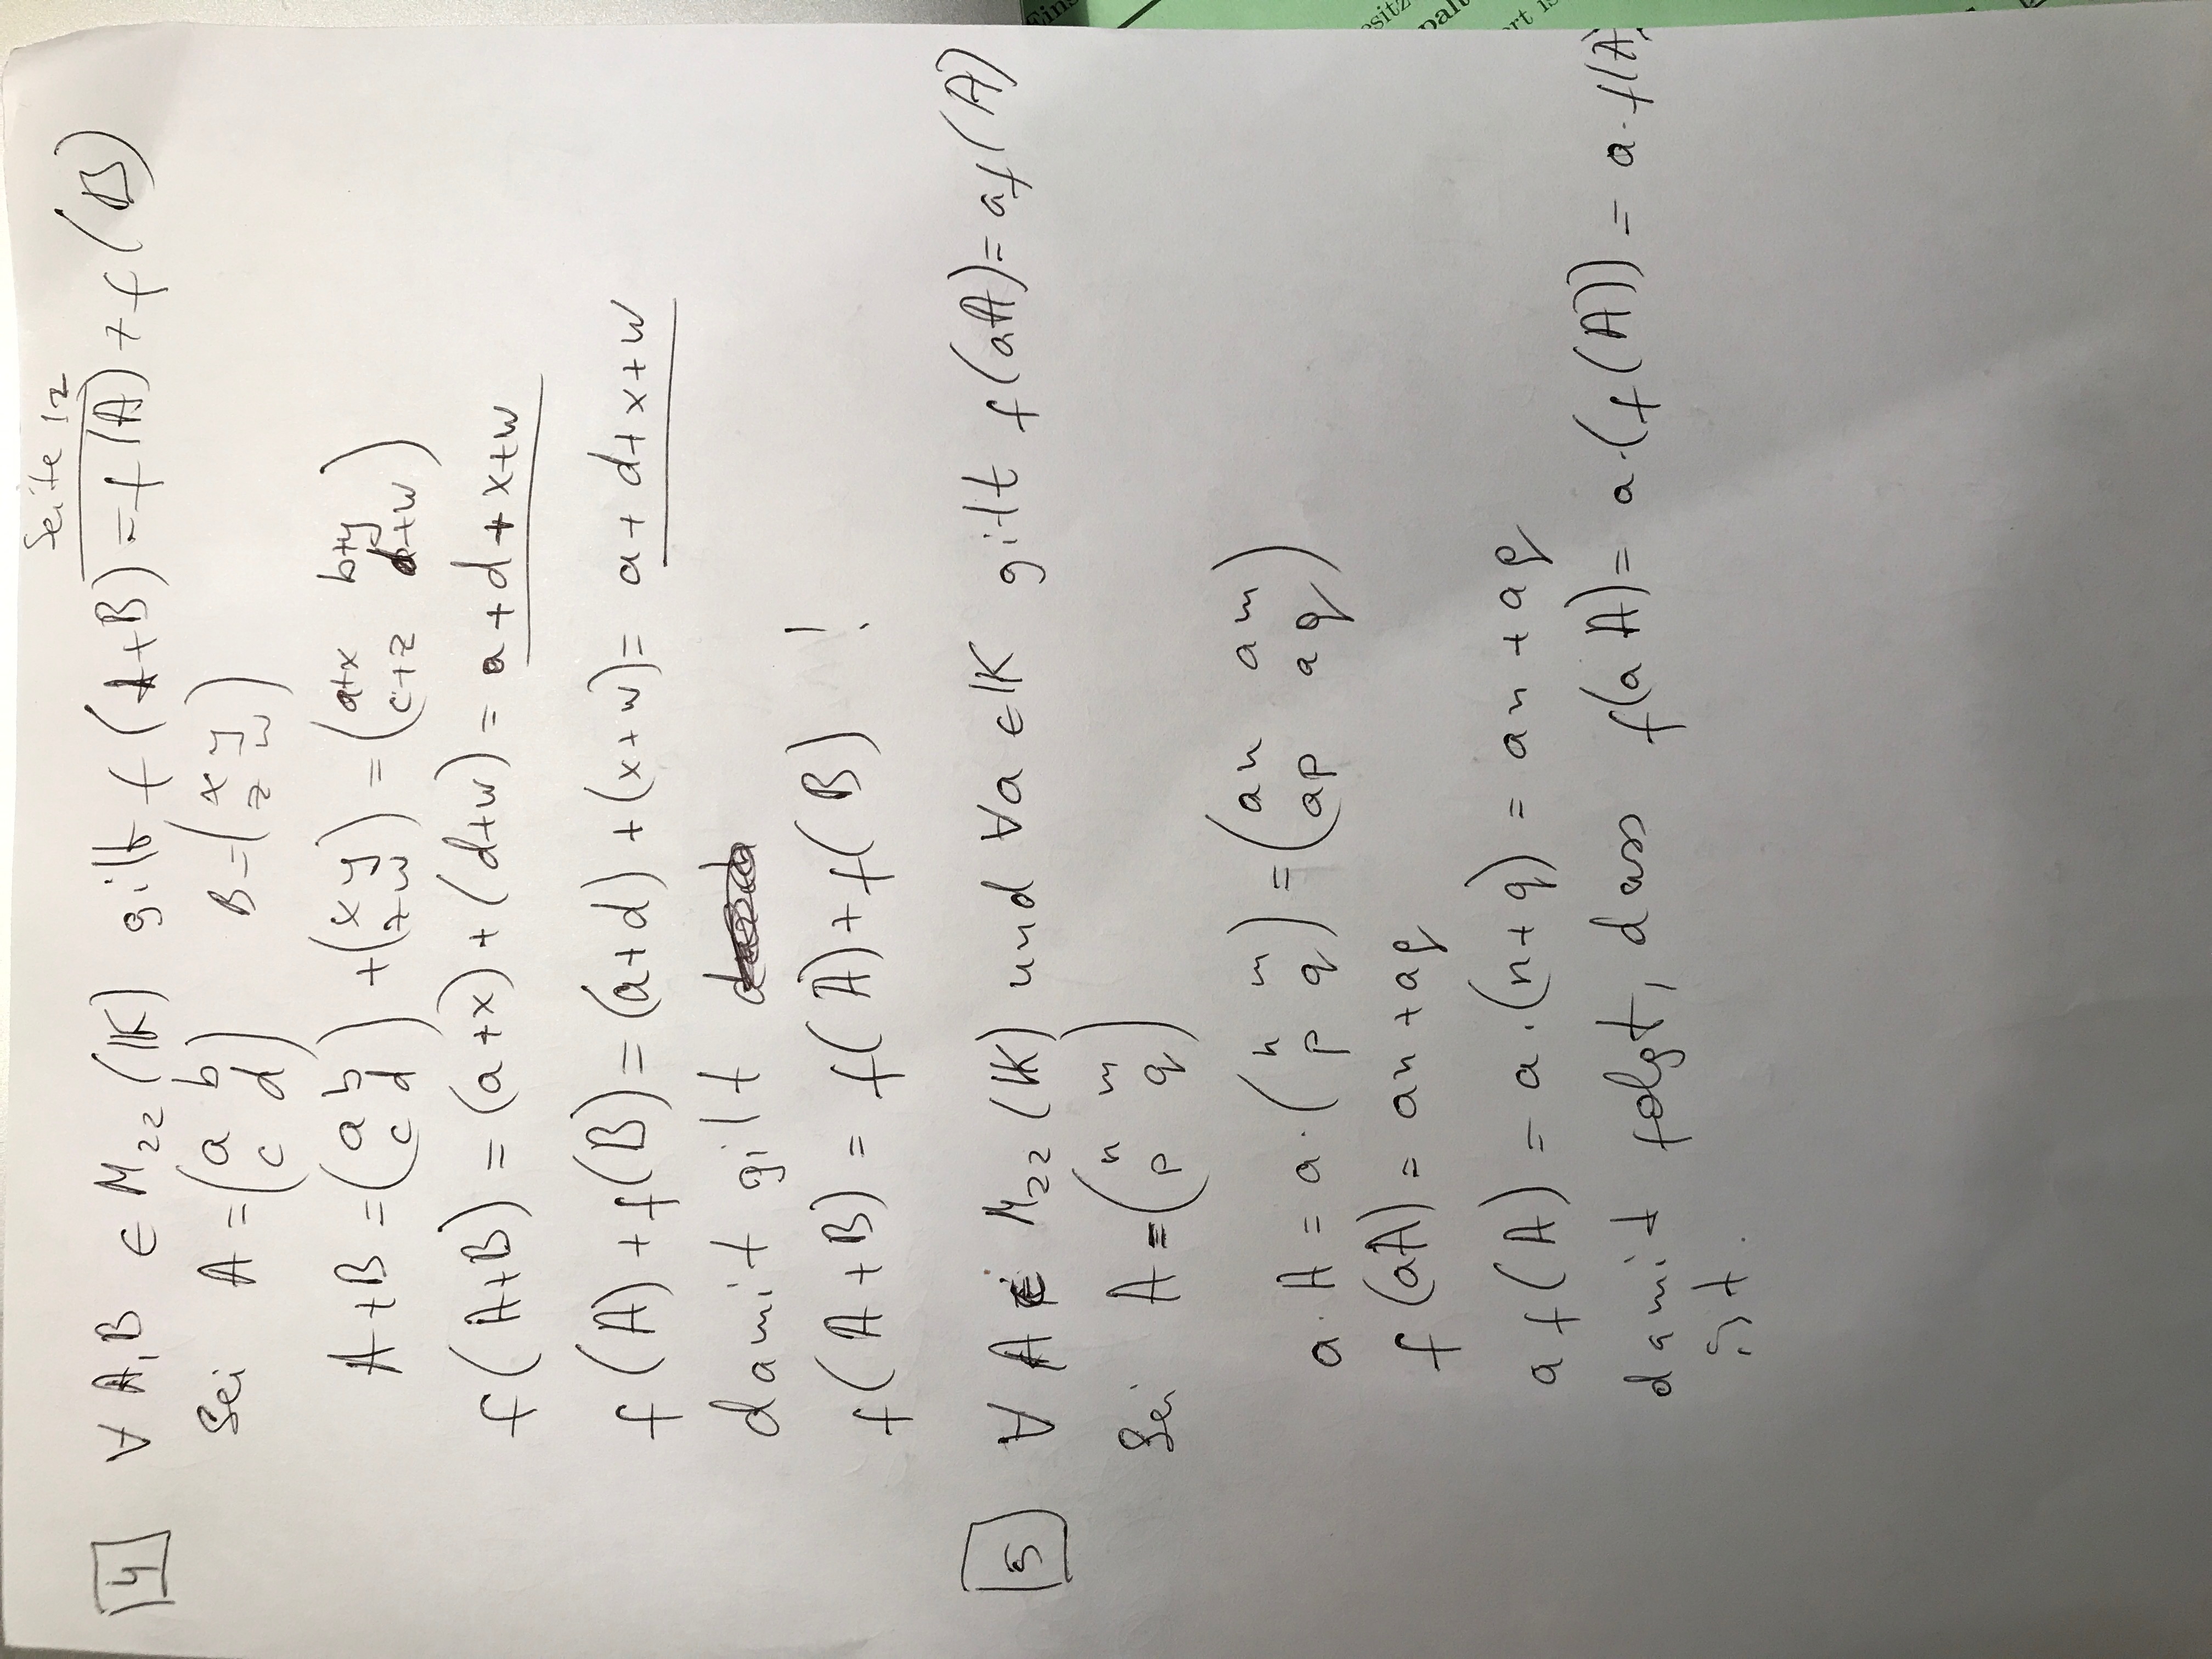 Seite 12
4 ∀ A,B ∈ M₂₂ (K) gilt f (A+B) = f(A) + f(B)
Sei A = (a b
c d) B = (x y
z w)
A+B = (a b
c d) + (x y
z w) = (a+x b+y
c+z d+w)
f(A+B) = (a+x) + (d+w) = a+d+x+w
f(A) + f(B) = (a+d) + (x+w) = a+d+x+w
damit gilt
f(A+B) = f(A) + f(B) !
5 ∀ A ∈ M₂₂ (K) und ∀a ∈ K gilt f(aA) = af(A)
Sei A = (n m
p q)
a · A = a · (n m
p q) = (an am
ap aq)
f(aA) = an + aq
a f(A) = a · (n+q) = an + aq
damit folgt, dass f(a A) = a · (f(A)) = a · f(A)
ist.
Eins
esitz
palt
rt is